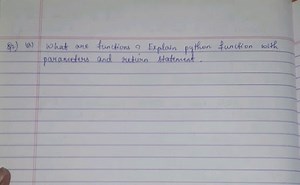 Q2) (a) What are functions ? Explain python function with
parameters and return statement.